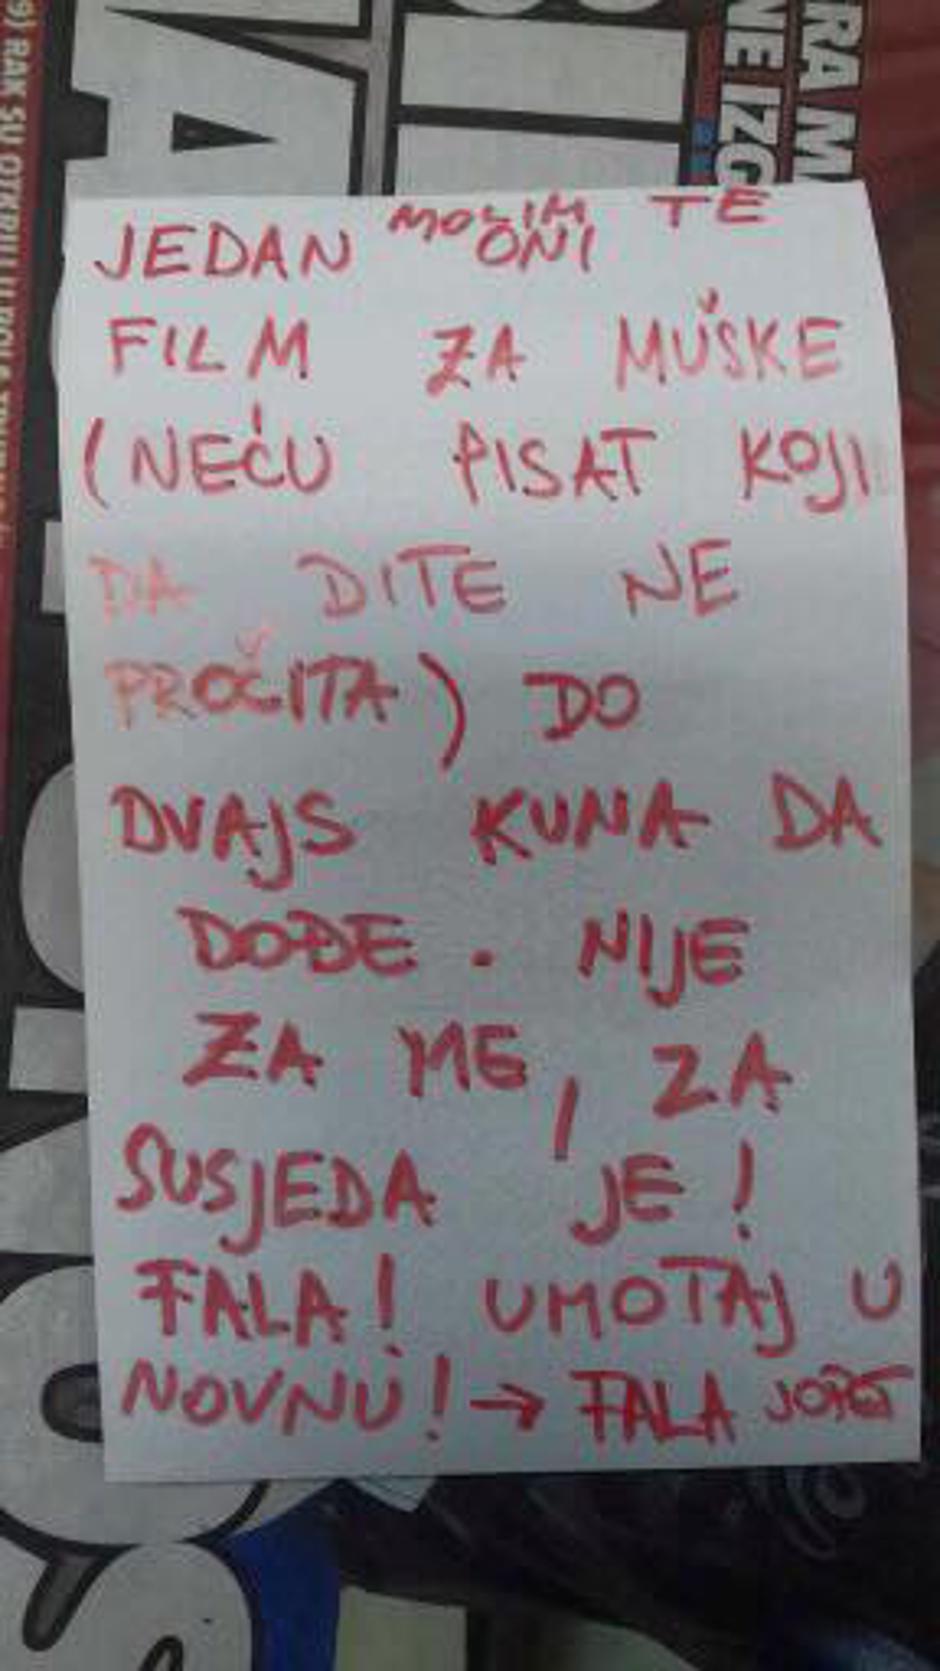 RA M
NE IZG
JEDAN MOLIM TE
ONI
FILM ZA MUŠKE
(NEĆU PISAT KOJI
DA DITE NE
PROČITA) DO
DVAJS KUNA DA
DOĐE. NIJE
ZA ME, ZA
SUSJEDA JE!
FALA! UMOTAJ U
NOVNU! → FALA JOPET